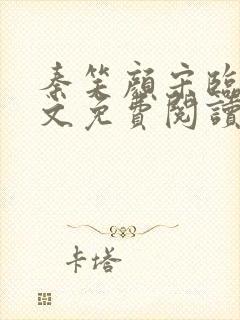 秦笑顏宋臨
文免費閱讀
卡塔